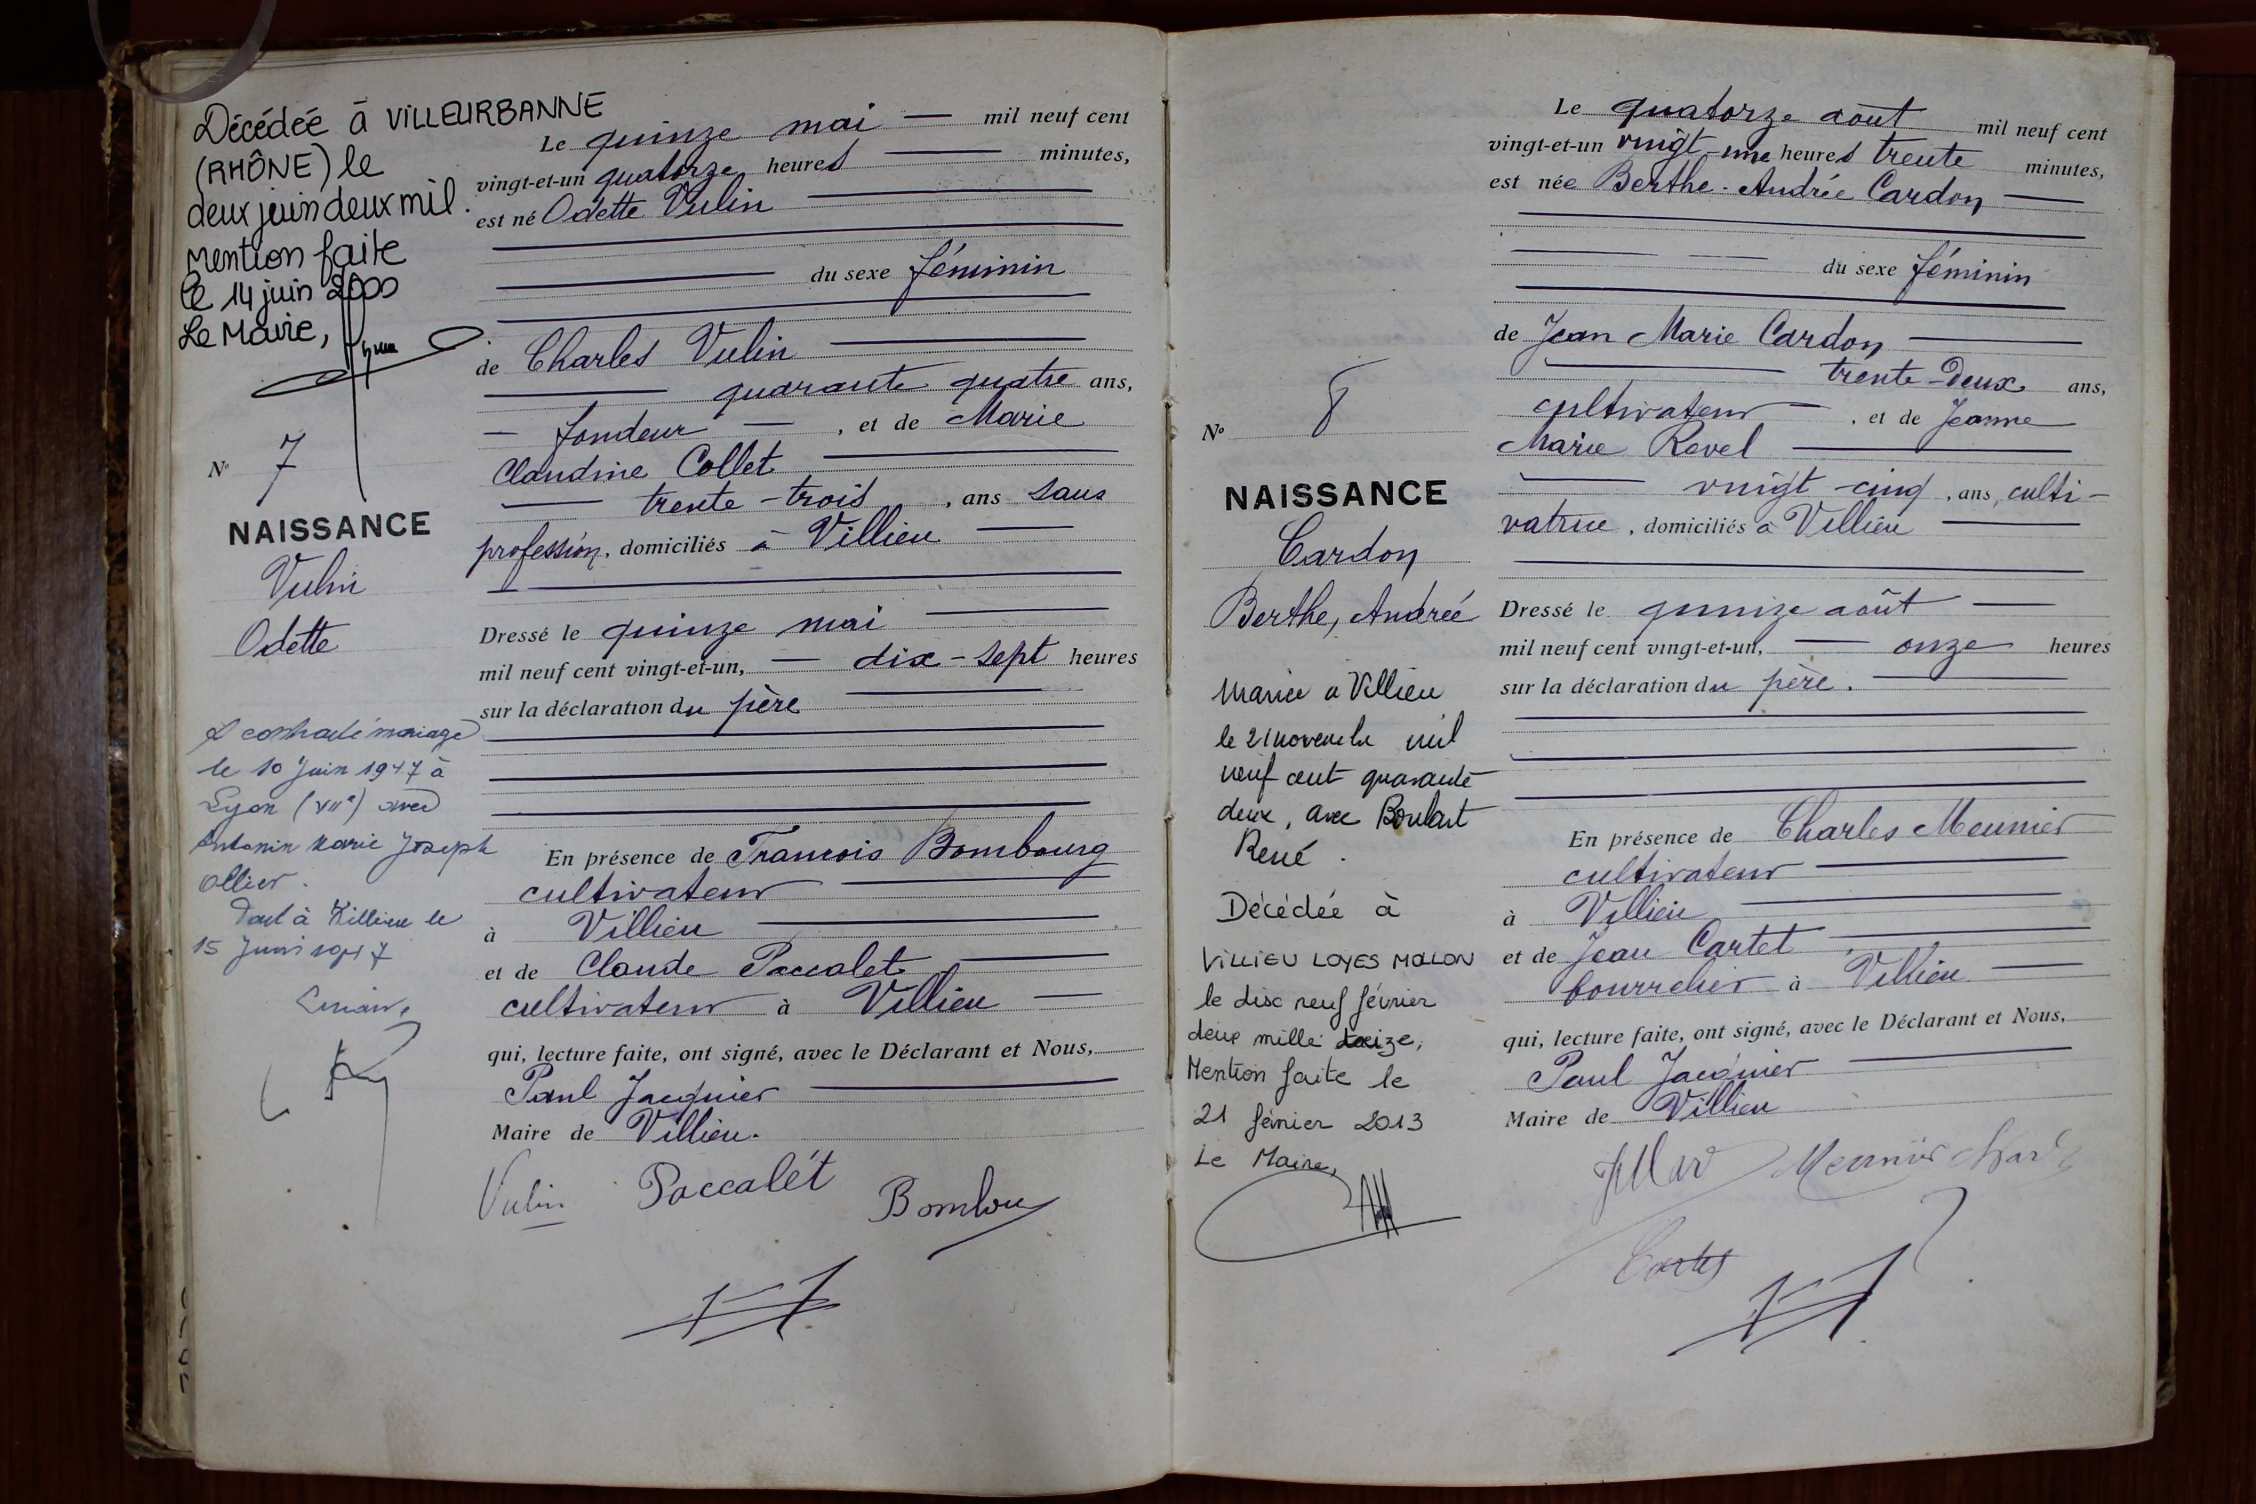 Décédée à VILLEURBANNE
(RHÔNE) le
deux juin deux mil.
Mention faite
le 14 juin 2000
Le Maire,
N° 7
NAISSANCE
Vulin
Odette
A contracté mariage
le 10 Juin 1947 à
Lyon (VIIe) avec
Antonin Marie Joseph
Ollier.
à Villieu le
15 Juin 1947
Le quinze mai mil neuf cent
vingt-et-un quatorze heures minutes,
est né Odette Vulin
du sexe féminin
de Charles Vulin
quarante quatre ans,
fondeur, et de Marie
Claudine Collet
trente-trois, ans sans
profession, domiciliés à Villieu
Dressé le quinze mai
mil neuf cent vingt-et-un, dix-sept heures
sur la déclaration du père
En présence de François Bombourg
cultivateur
à Villieu
et de Claude Paccalet
cultivateur à Villieu
qui, lecture faite, ont signé, avec le Déclarant et Nous,
Paul Jacquier
Maire de Villieu.
Vulin Paccalét Bombou
N° 8
NAISSANCE
Cardon
Berthe, Andrée
Mariée à Villieu
le 21 novembre mil
neuf cent quarante
deux, avec
René.
Décédée à
VILLIEU LOYES MOLLON
le dix neuf février
deux mille treize,
Mention faite le
21 février 2013
Le Maire,
Le quatorze août mil neuf cent
vingt-et-un vingt-une heures trente minutes,
est née Berthe-Andrée Cardon
du sexe féminin
de Jean Marie Cardon
trente-deux ans,
cultivateur, et de Jeanne
Marie Revel
vingt-cinq, ans, culti-
vatrice, domiciliés à Villieu
Dressé le quinze août
mil neuf cent vingt-et-un, onze heures
sur la déclaration du père.
En présence de Charles Meunier
cultivateur
à Villieu
et de Jean Cartet
bourrelier à Villieu
qui, lecture faite, ont signé, avec le Déclarant et Nous,
Paul Jacquier
Maire de Villieu
Meunier